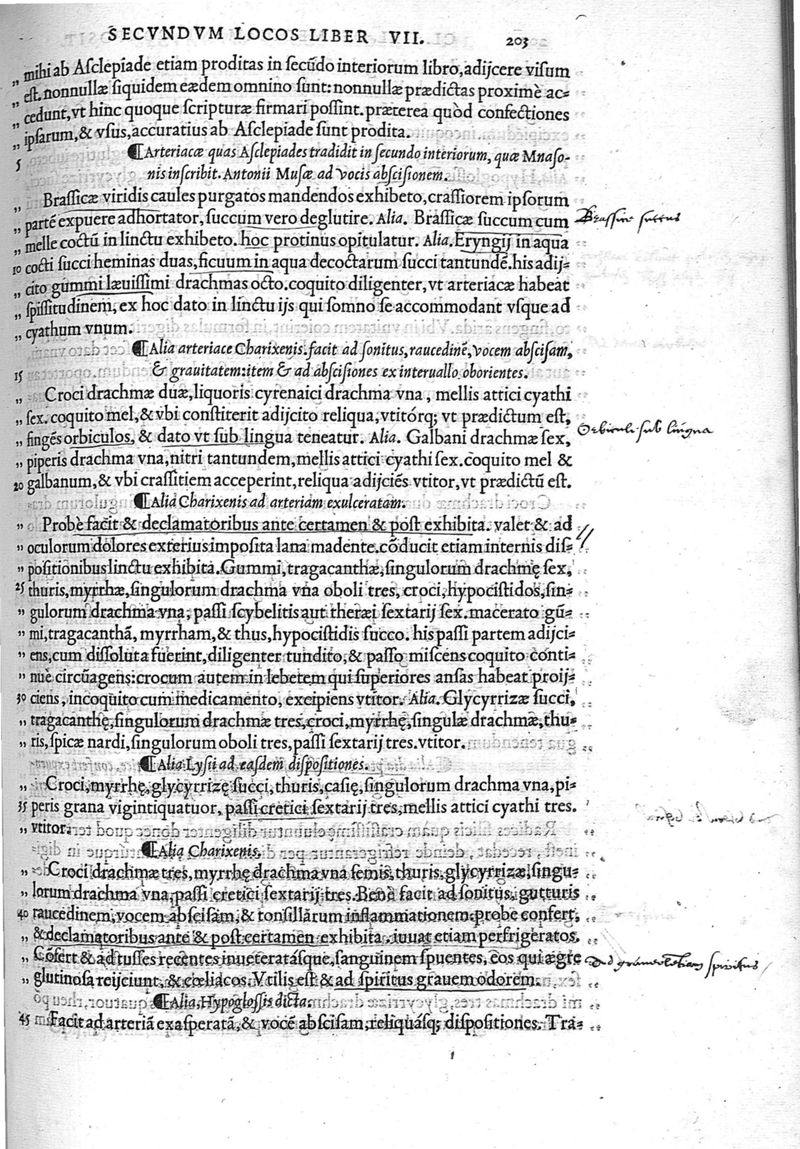 SECVNDVM LOCOS LIBER VII. 203
„ mihi ab Asclepiade etiam proditas in secũdo interiorum libro, adijcere visum
„ est. nonnullæ siquidem eædem omnino sunt: nonnullæ prædictas proximè ac-
„ cedunt, vt hinc quoque scripturæ firmari possint. præterea quòd confectiones
„ ipsarum, & vsus, accuratius ab Asclepiade sunt prodita.
5 ¶ Arteriacæ quas Asclepiades tradidit in secundo interiorum, quæ Mnaso-
nis inscribit. Antonii Musæ ad vocis abscisionem.
„ Brassicæ viridis caules purgatos mandendos exhibeto, crassiorem ipsorum
„ partẽ expuere adhortator, succum vero deglutire. Alia. Brassicæ succum cum
Brassicæ succus
„ melle coctũ in linctu exhibeto. hoc protinus opitulatur. Alia. Eryngij in aqua
10 cocti succi heminas duas, ficuum in aqua decoctarum succi tantundẽ. his adij-
„ cito gummi læuissimi drachmas octo. coquito diligenter, vt arteriacæ habeat
„ spissitudinem, ex hoc dato in linctu ijs qui somno se accommodant vsque ad
„ cyathum vnum.
¶ Alia arteriace Charixenis. facit ad sonitus, raucedinẽ, vocem abscisam,
15 & grauitatem: item & ad abscisiones ex interuallo oborientes.
„ Croci drachmæ duæ, liquoris cyrenaici drachma vna, mellis attici cyathi
„ sex. coquito mel, & vbi constiterit adijcito reliqua, vtitórq; vt prædictum est,
„ fingẽs orbiculos, & dato vt sub lingua teneatur. Alia. Galbani drachmæ sex,
Orbiculi sub lingua
„ piperis drachma vna, nitri tantundem, mellis attici cyathi sex. coquito mel &
20 galbanum, & vbi crassitiem acceperint, reliqua adijciẽs vtitor, vt prædictũ est.
¶ Alia Charixenis ad arteriam exulceratam.
„ Probè facit & declamatoribus ante certamen & post exhibita. valet & ad
„ oculorum dolores exterius imposita lana madente. cõducit etiam internis dis-
„ positionibus linctu exhibita. Gummi, tragacanthæ, singulorum drachmę sex,
25 thuris, myrrhæ, singulorum drachma vna oboli tres, croci, hypocistidos, sin-
„ gulorum drachma vna, passi scybelitis aut theræi sextarij sex. macerato gũ-
„ mi, tragacanthã, myrrham, & thus, hypocistidis succo. his passi partem adijci-
„ ens, cum dissoluta fuerint, diligenter tundito, & passo miscens coquito conti-
„ nuè circũagens: crocum autem in lebetem qui superiores ansas habeat proij-
30 ciens, incoquito cum medicamento, exeipiens vtitor. Alia. Glycyrrizæ succi,
„ tragacanthę, singulorum drachmæ tres, croci, myrrhę, singulæ drachmæ, thu-
„ ris, spicæ nardi, singulorum oboli tres, passi sextarij tres. vtitor.
¶ Alia Lysii ad easdem dispositiones.
„ Croci, myrrhę, glycyrrizę succi, thuris, casię, singulorum drachma vna, pi-
35 peris grana vigintiquatuor, passi cretici sextarij tres, mellis attici cyathi tres.
„ vtitor.
¶ Alia Charixenis.
„ Croci drachmæ tres, myrrhę drachma vna semis, thuris, glycyrrizæ, singu-
„ lorum drachma vna, passi cretici sextarij tres. Benè facit ad sonitus, gutturis
40 raucedinem, vocem abscisam, & tonsillarum inflammationem. probe confert,
„ & declamatoribus ante & post certamen exhibita. iuuat etiam perfrigeratos.
„ Cõfert & ad tusses recentes inueteratásque, sanguinem spuentes, eos qui ægre
„ glutinosa reijciunt, & cœliacos. Vtilis est & ad spiritus grauem odorem.
¶ Alia, Hypoglossis dicta.
45 Facit ad arteriã exasperatã, & vocẽ abscisam, reliquásq; dispositiones. Tra-